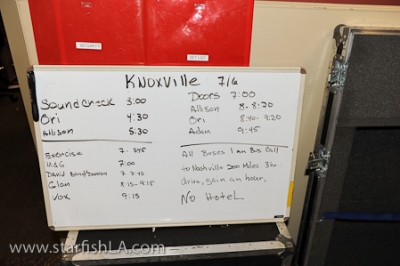 KNOXVILLE 7/6
Soundcheck 3:00
Ori 4:30
Allison 5:30
Doors 7:00
Allison 8-8:20
Ori 8:40-9:20
Adam 9:45
Exercise 7-
M&G 7:00
David 7-7:45
Glam 8:15-9:15
Vox 9:15
All Buses 1 am Bus Call
to Nashville 200 Miles 3 hr.
drive, gain an hour.
NO HOTEL
www.starfishLA.com